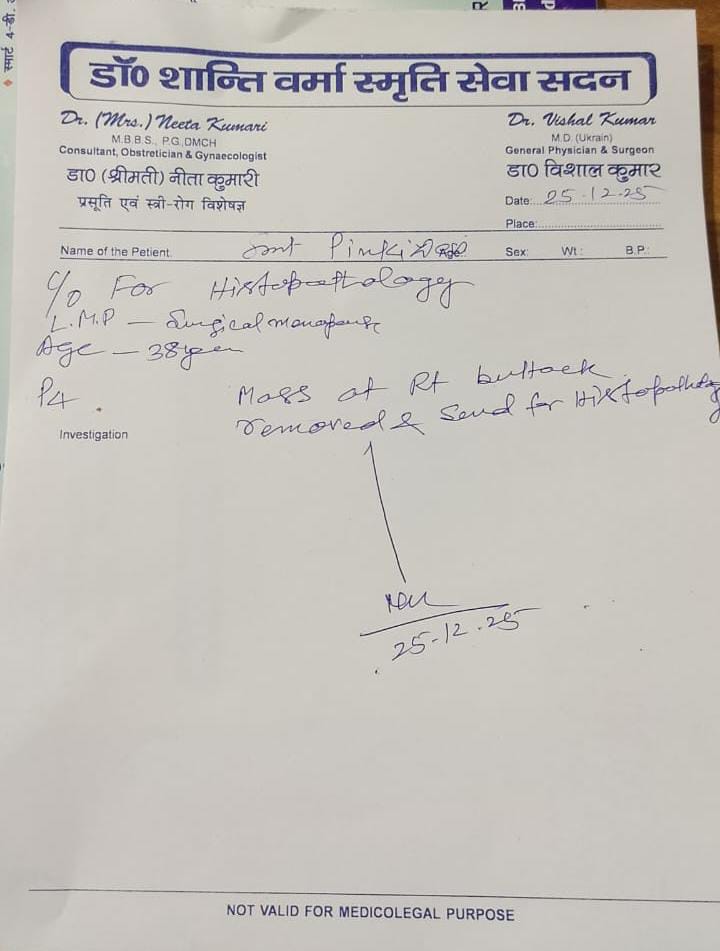 स्मार्ट 4-डी.
डॉ० शान्ति वर्मा स्मृति सेवा सदन
Dr. (Mrs.) Neeta Kumari
M.B.B.S., P.G.DMCH
Consultant, Obstetrician & Gynaecologist
डा० (श्रीमती) नीता कुमारी
प्रसूति एवं स्त्री-रोग विशेषज्ञ
Dr. Vishal Kumar
M.D. (Ukrain)
General Physician & Surgeon
डा० विशाल कुमार
Date: 25.12.25
Place:
Name of the Petient. Smt Pinki Sex: Wt: B.P.:
C/o For Histopathology
L.M.P – Surgical menopause
Age – 38 year
P4
Mass at Rt buttock
removed & Send for Histopathology
Investigation
25-12.25
NOT VALID FOR MEDICOLEGAL PURPOSE